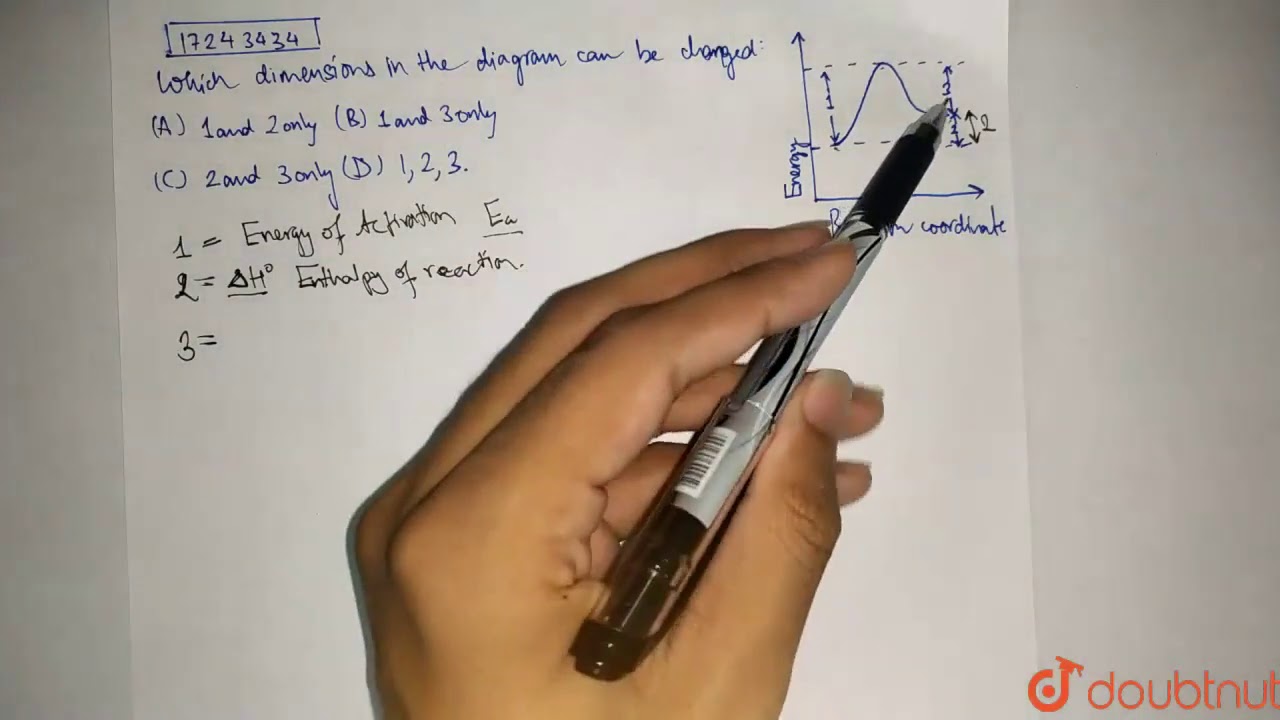 17243434
Which dimensions in the diagram can be changed:
(A) 1 and 2 only (B) 1 and 3 only
(C) 2 and 3 only (D) 1, 2, 3.
1 = Energy of Activation Ea
2 = ΔH° Enthalpy of reaction.
3 =
1
3
2
2
Energy
coordinate
doubtnut